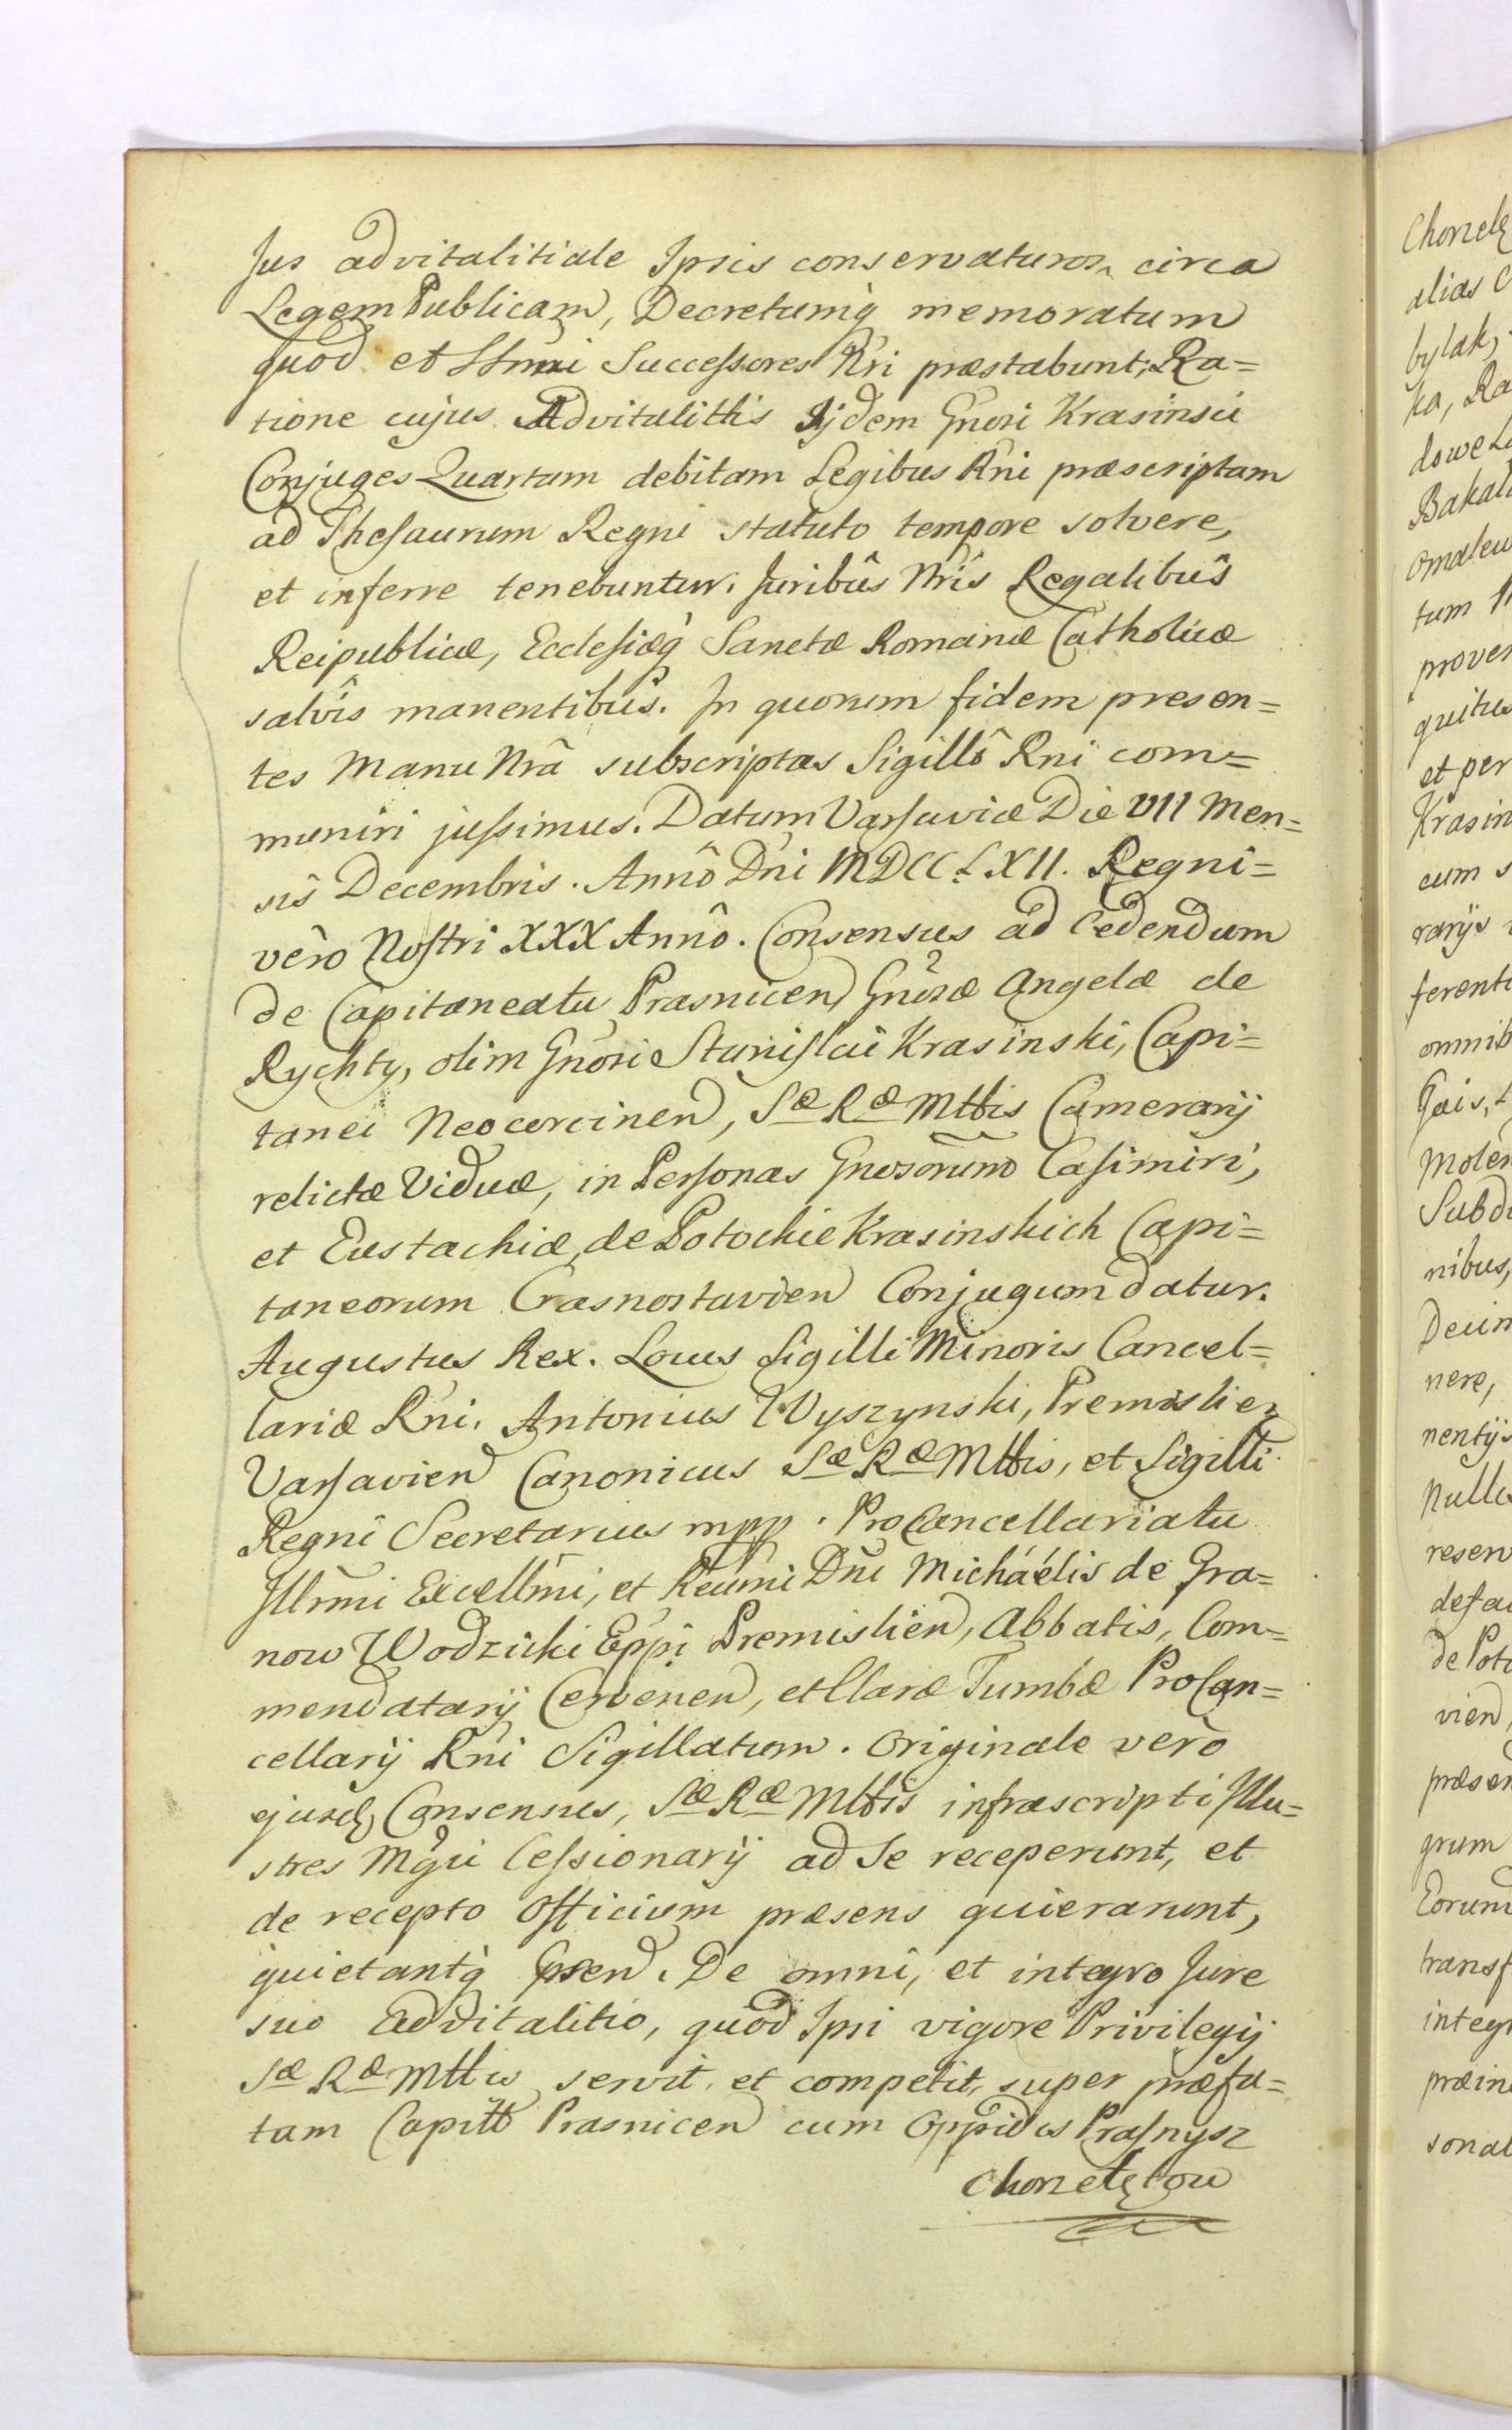 Jus advitalitiale Ipsis conservaturos, circa
Legem Publicam, Decretumq́ memoratum
quod et Sñmi Successores Ñri præstabunt; Ra=
tione cujus Advitalittis Ijdem Gñosi Krasinscii
Conjuges Quartam debitam Legibus Rñi præscriptam
ad Thesaurum Regni statuto tempore solvere,
et inferre tenebuntur. Juribûs Ñris Regalibûs
Reipublicæ, Ecclesiæq́ Sanctæ Romanæ Catholicæ
salvîs manentibûs. In quorum fidem presen=
tes Manu Nrâ subscriptas Sigillô Rñi com=
muniri jussimus. Datum Varsaviæ Die VII Men=
sis Decembris. Annô Dñi MDCCLXII. Regni=
verò Nostri XXX Annô. Consensus ad cedendum
de Capitaneatu Prasnicen Gñosæ Angelæ de
Rychty, olim Gñosi Stanislai Krasinski, Capi=
tanei Neocorcinen, Sæ Ræ Mttis Camerarij
relictæ Viduæ, in Personas Gnosorum Casimiri,
et Eustachiæ, de Potockie Krasinskich Capi=
taneorum Crasnostavien Conjugum datur.
Augustus Rex. Locus Sigilli Minoris Cancel=
lariæ Rñi. Antonius Wyszynski, Premislien
Varsavien Canonicus Sæ Ræ Mttis, et Sigilli
Regni Secretarius mpp. ProCancellariatu
Illr̃mi Excellm̃i, et Reum̃i Dñi Michaélis de Gra=
now Wodzicki Epp̃i Premislien, Abbatis, Com=
mendatarij Cervenen, et Claræ Tumbæ ProCan=
cellarij Rñi Sigillatum. Originale verò
ejusd Consensus, Sæ Ræ Mttis infrascripti Illu=
stres Mgci Cessionarij ad Se receperunt, et
de recepto Officium præsens quietarunt,
quietantq́ præsen. De omni, et integro Jure
suo Advitalitio, quod Ipsi vigore Privilegij
Sæ Ræ Mttis servit, et competit, super præfa=
tam Capitt Prasnicen cum Oppidis Prasnysz
Chorzele,
Chorzele
alias C
bylak,
ka, Ra
dowe La
Bakala
tum
prover
quitus
et per
Krasin
cum s
rarijs
ferenti
omnib
Gais, L
Molen
Subd
nibus,
Decim
nere,
nentijs
Nullis
reserv
de Poto
vien,
præsen
grum
Eorum
transf
integr
præin
sonal